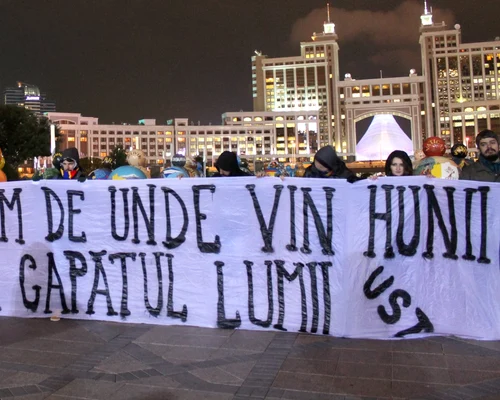 M DE UNDE VIN HUNII
GAPĂTUL LUMII
UST